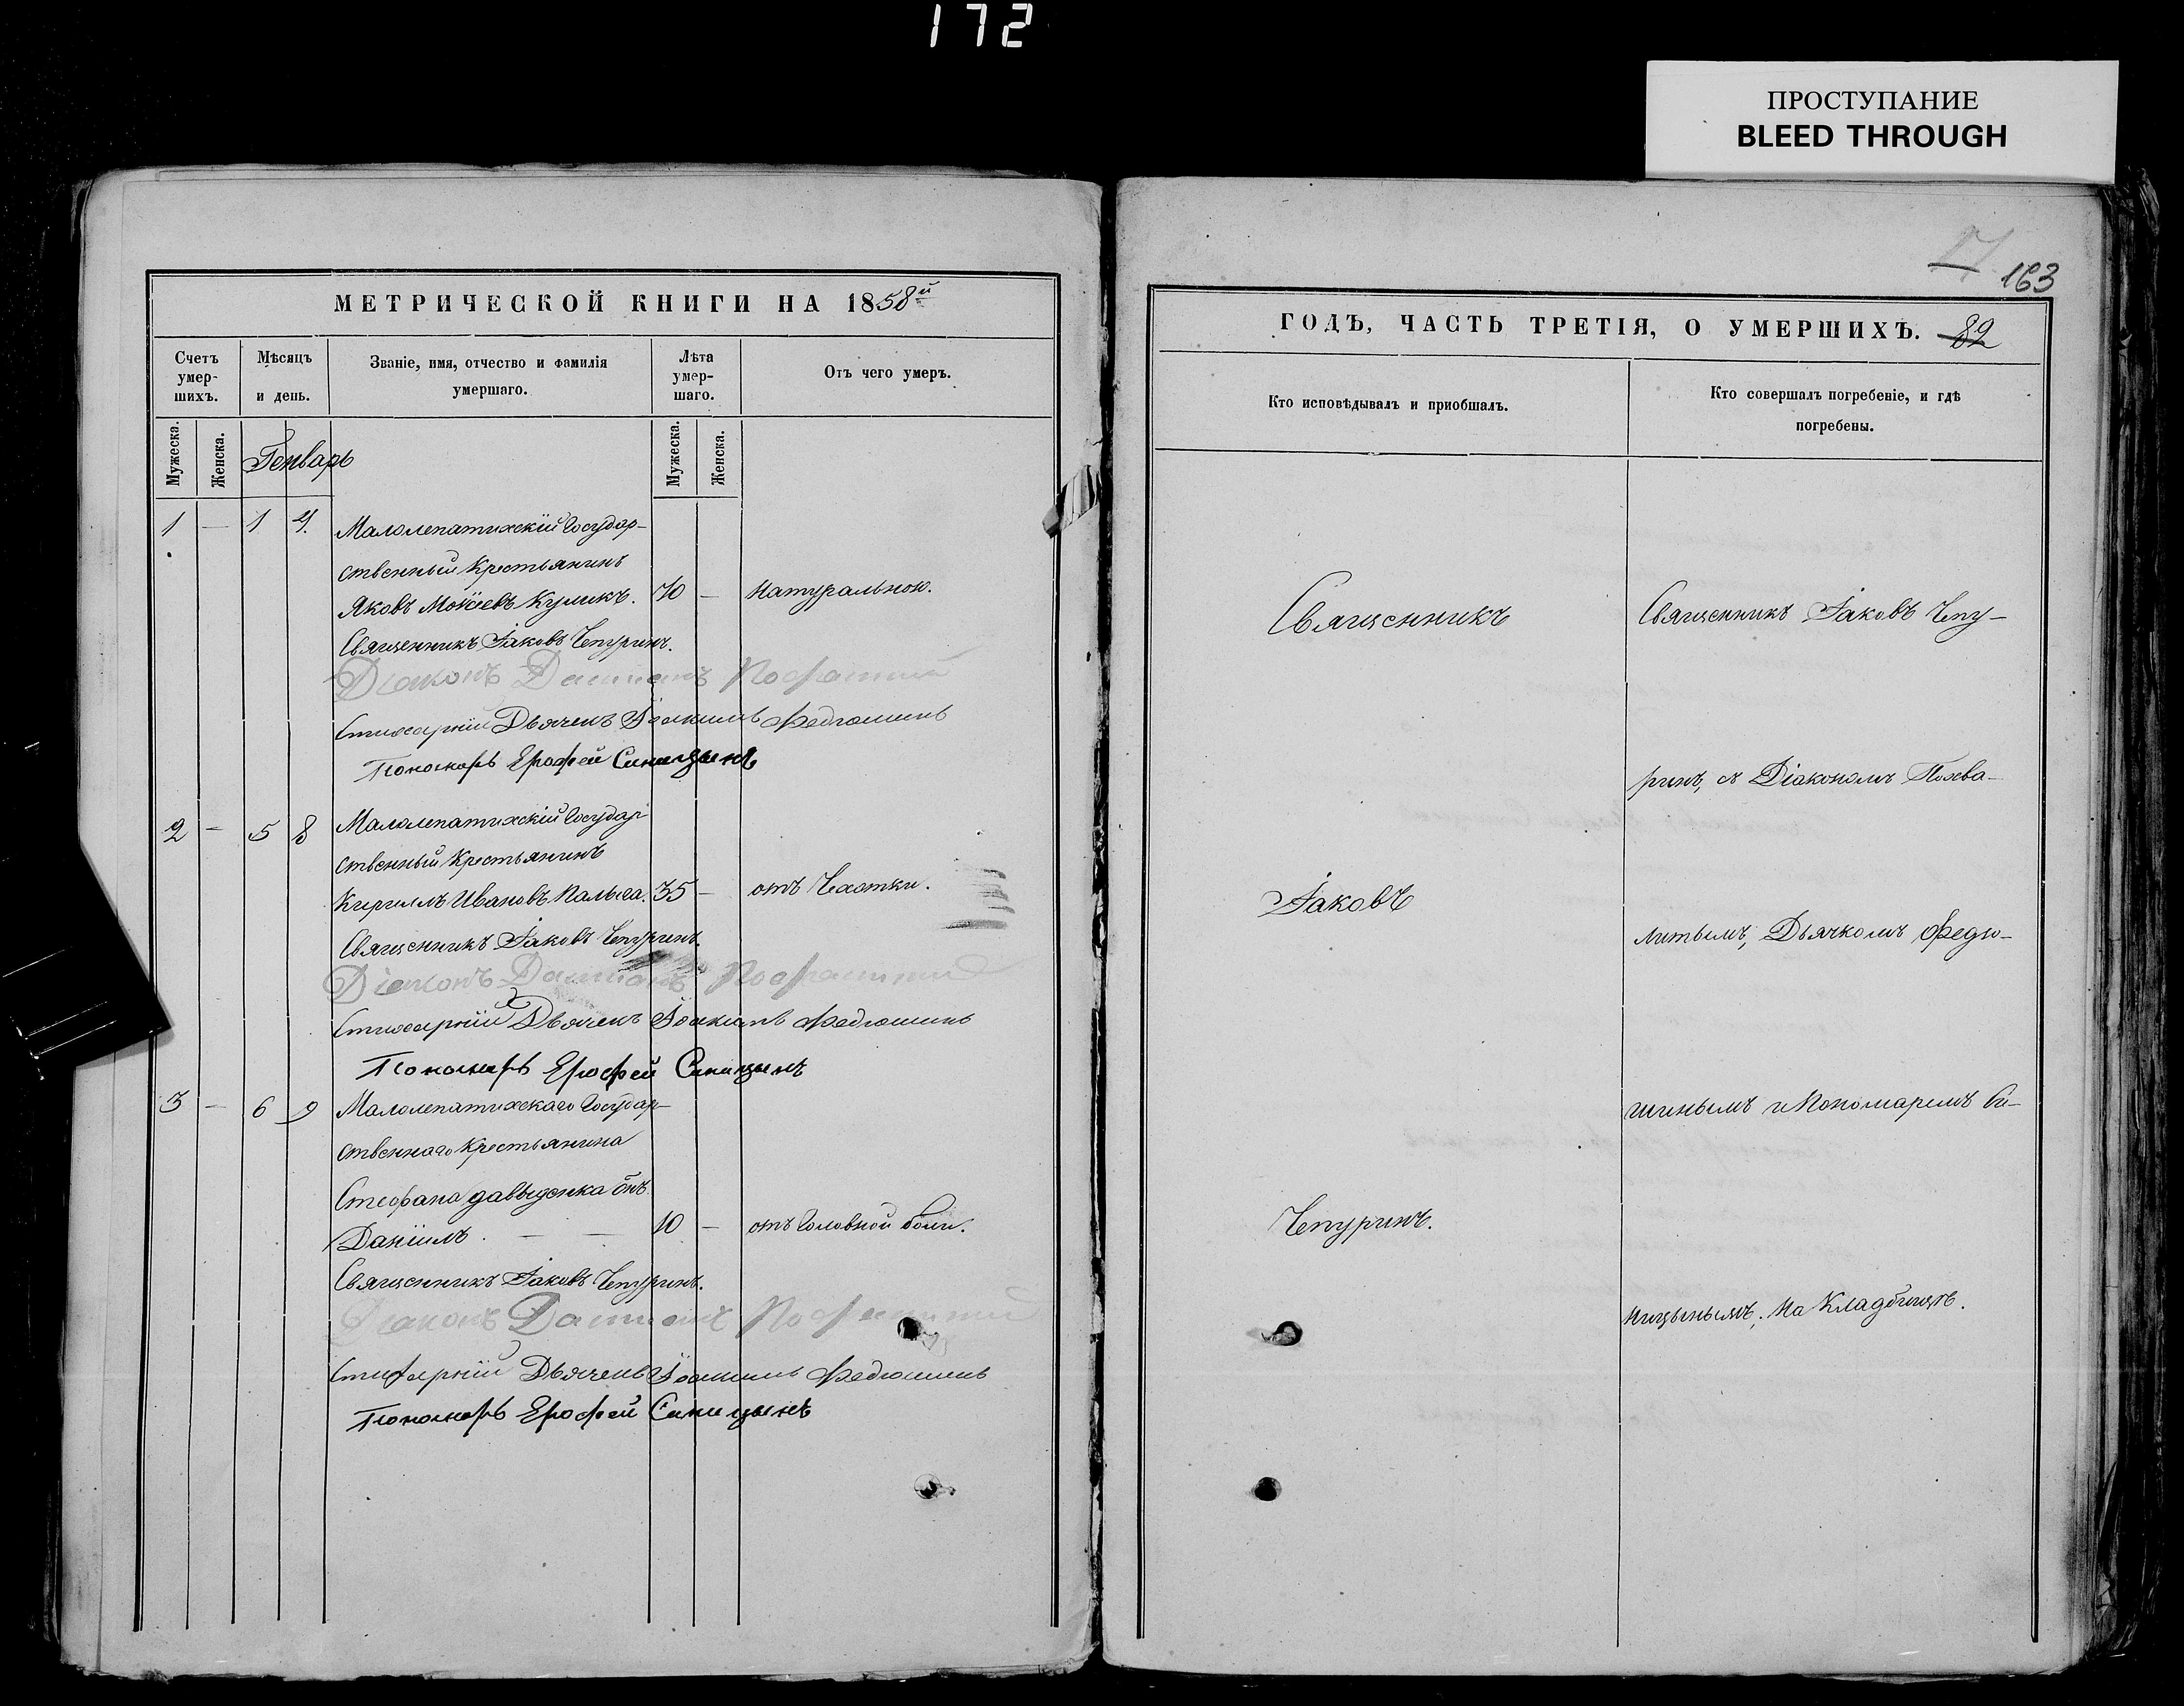 172
ПРОСТУПАНИЕ
BLEED THROUGH
МЕТРИЧЕСКОЙ КНИГИ НА 1858й
Счетъ умер-шихъ.
Мѣсяцъ и день.
Званіе, имя, отчество и фамилія умершаго.
Лѣта умер-шаго.
Отъ чего умеръ.
Мужеска.
Женска.
Генварь
Мужеска.
Женска.
1 — 1 4. Малолепатихскій Государ-
ственный Крестьянинъ
Яковъ Моѵсеевъ Куликъ. 70 — Натуральною.
Священникъ Іаковъ Чепуринъ.
Діаконъ Даміанъ
Стихарный Дьячекъ Іоакимъ Федюшинъ
Пономарь Ерофей Синицынъ
2 — 5 8 Малолепатихскій Государ-
ственный Крестьянинъ
Кирилъ Ивановъ 35 — отъ Чахотки.
Священникъ Іаковъ Чепуринъ.
Діаконъ Даміанъ
Стихарный Дьячекъ Іоакимъ Федюшинъ
Пономарь Ерофей Синицынъ
3 — 6 9 Малолепатихскаго Государ-
ственнаго Крестьянина
Стефана Давыденка сынъ
Даніилъ. — — 10 — отъ Головной боли.
Священникъ Іаковъ Чепуринъ.
Діаконъ Даміанъ
Стихарный Дьячекъ Іоакимъ Федюшинъ
Пономарь Ерофей Синицынъ
163
ГОДЪ, ЧАСТЬ ТРЕТІЯ, О УМЕРШИХЪ. 82
Кто исповѣдывалъ и пріобщалъ.
Кто совершалъ погребеніе, и гдѣ погребены.
Священникъ
Іаковъ
Чепуринъ.
Священникъ Іаковъ Чепу-
ринъ, съ Діакономъ Похва-
литымъ, Дьячкомъ Федю-
шинымъ и Пономаремъ Си-
ницынымъ, На Кладбищѣ.